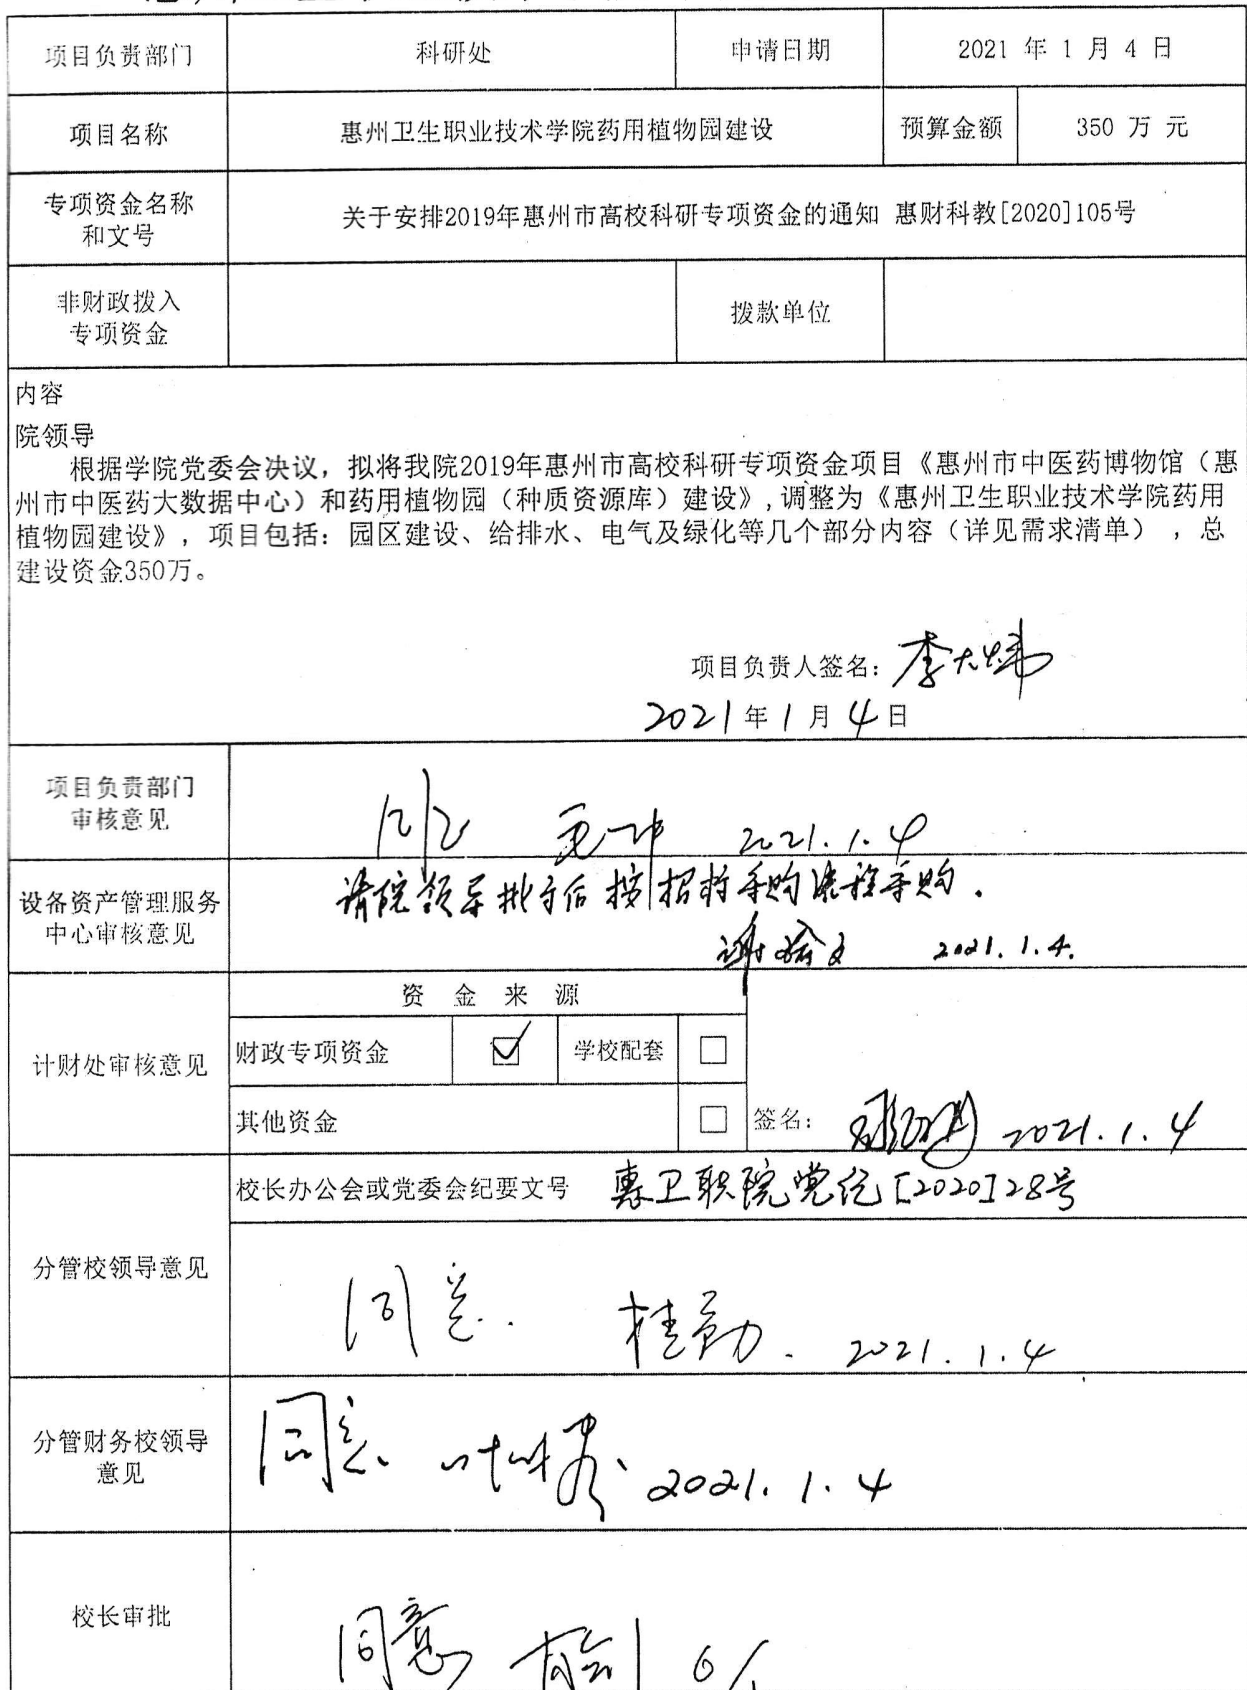 项目负责部门 科研处 申请日期 2021 年 1 月 4 日
项目名称 惠州卫生职业技术学院药用植物园建设 预算金额 350 万 元
专项资金名称
和文号
关于安排2019年惠州市高校科研专项资金的通知 惠财科教[2020]105号
非财政拨入
专项资金
拨款单位
内容
院领导
根据学院党委会决议，拟将我院2019年惠州市高校科研专项资金项目《惠州市中医药博物馆（惠
州市中医药大数据中心）和药用植物园（种质资源库）建设》,调整为《惠州卫生职业技术学院药用
植物园建设》，项目包括：园区建设、给排水、电气及绿化等几个部分内容（详见需求清单），总
建设资金350万。
项目负责人签名：
2021年1月4日
项目负责部门
审核意见
2021.1.4
设备资产管理服务
中心审核意见
请院领导批示后按招标采购流程采购.
2021.1.4.
计财处审核意见
资 金 来 源
财政专项资金 ☑ 学校配套 □
其他资金 □
签名： 2021.1.4
分管校领导意见
校长办公会或党委会纪要文号 惠卫职院党纪[2020]28号
同意. 桂勤. 2021.1.4
分管财务校领导
意见
同意. 2021.1.4
校长审批
同意